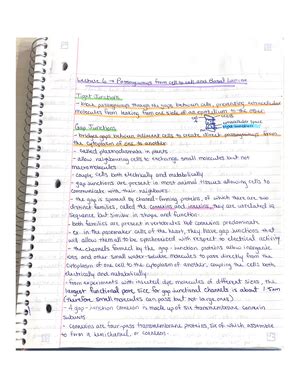 Lecture 6 → Passageways from cell to cell and Channel
Tight Junctions
- block passageways through the gaps between cells, preventing extracellular
molecules from leaking from one side of an epithelium to the other
cells
extracellular space
tight junctions
Gap Junctions
- bridges gaps between adjacent cells to create direct passageways from
the cytoplasm of one to another
- called plasmodesmata in plants
- allow neighboring cells to exchange small molecules but not
macromolecules
- couple cells both electrically and metabolically
- gap junctions are present in most animal tissues allowing cells to
communicate with their neighbors
- the gap is spanned by channel-forming proteins, of which there are two
distinct families, called the connexins and innexins, they are unrelated in
sequence but similar in shape and function
- both families are present in vertebrates but connexins predominate
- ex. in the pacemaker cells of the heart, they have gap junctions that
will allow them to be synchronized with respect to electrical activity
- the channels formed by the gap junction proteins allow inorganic
ions and other small water-soluble molecules to pass directly from the
cytoplasm of one cell to the cytoplasm of another, coupling the cells both
electrically and metabolically
- from experiments with injected dye molecules of different sizes, the
largest functional pore size for gap junctional channels is about 1.5nm
(therefore small molecules can pass but not large ones)
- A gap-junction connexon is made up of six transmembrane connexin
subunits
- connexins are four-pass transmembrane proteins, six of which assemble
to form a hemichannel, or connexon